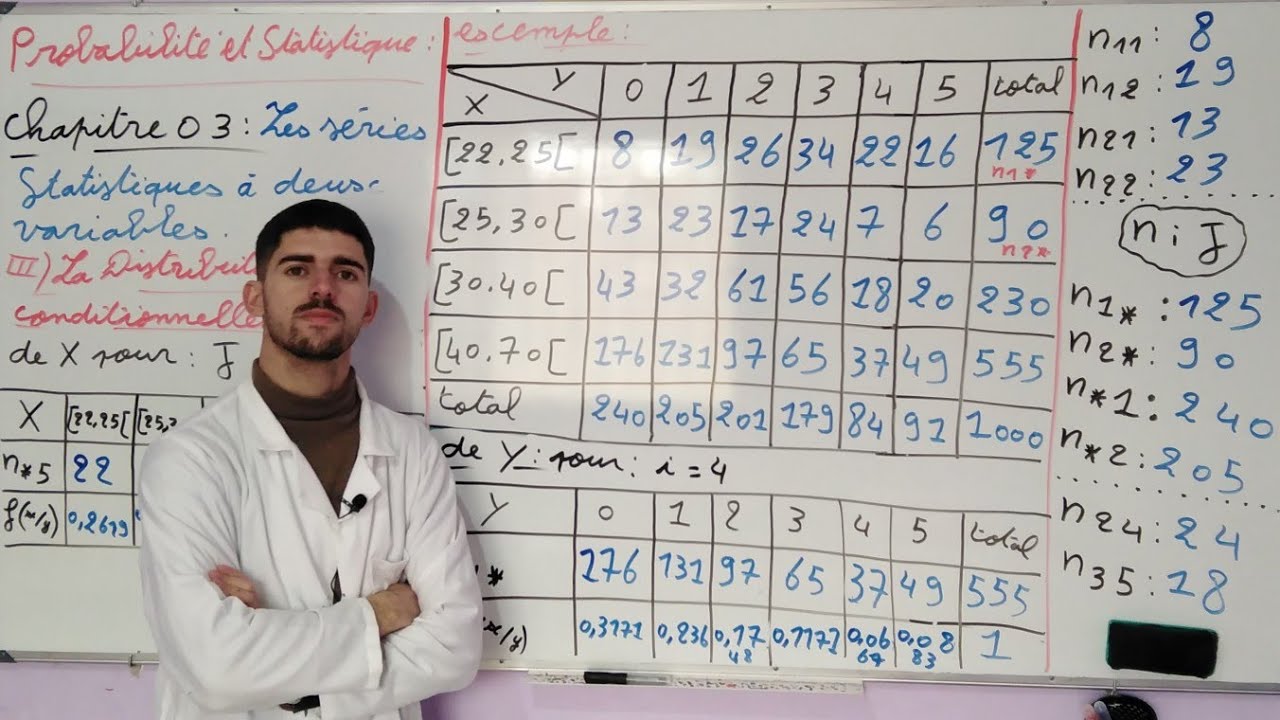 Probabilité et Statistique :
Chapitre 03 : Les séries
Statistiques à deux
variables.
III) La Distribu
conditionnelle
de X pour : J
X [22,25[ [25,
n*5 22
f(x/y) 0,2619
excemple :
X Y 0 1 2 3 4 5 total
[22,25[ 8 19 26 34 22 16 125
n1*
[25,30[ 13 23 17 24 7 6 90
n2*
[30.40[ 43 32 61 56 18 20 230
[40.70[ 176 131 97 65 37 49 555
total 240 205 201 179 84 91 1000
de Y : pour : i = 4
Y 0 1 2 3 4 5 total
* 176 131 97 65 37 49 555
(x/y) 0,3171 0,236 0,1748 0,1171 0,0667 0,0883 1
n11 : 8
n12 : 19
n21 : 13
n22 : 23
niJ
n1* : 125
n2* : 90
n*1 : 240
n*2 : 205
n24 : 24
n35 : 18